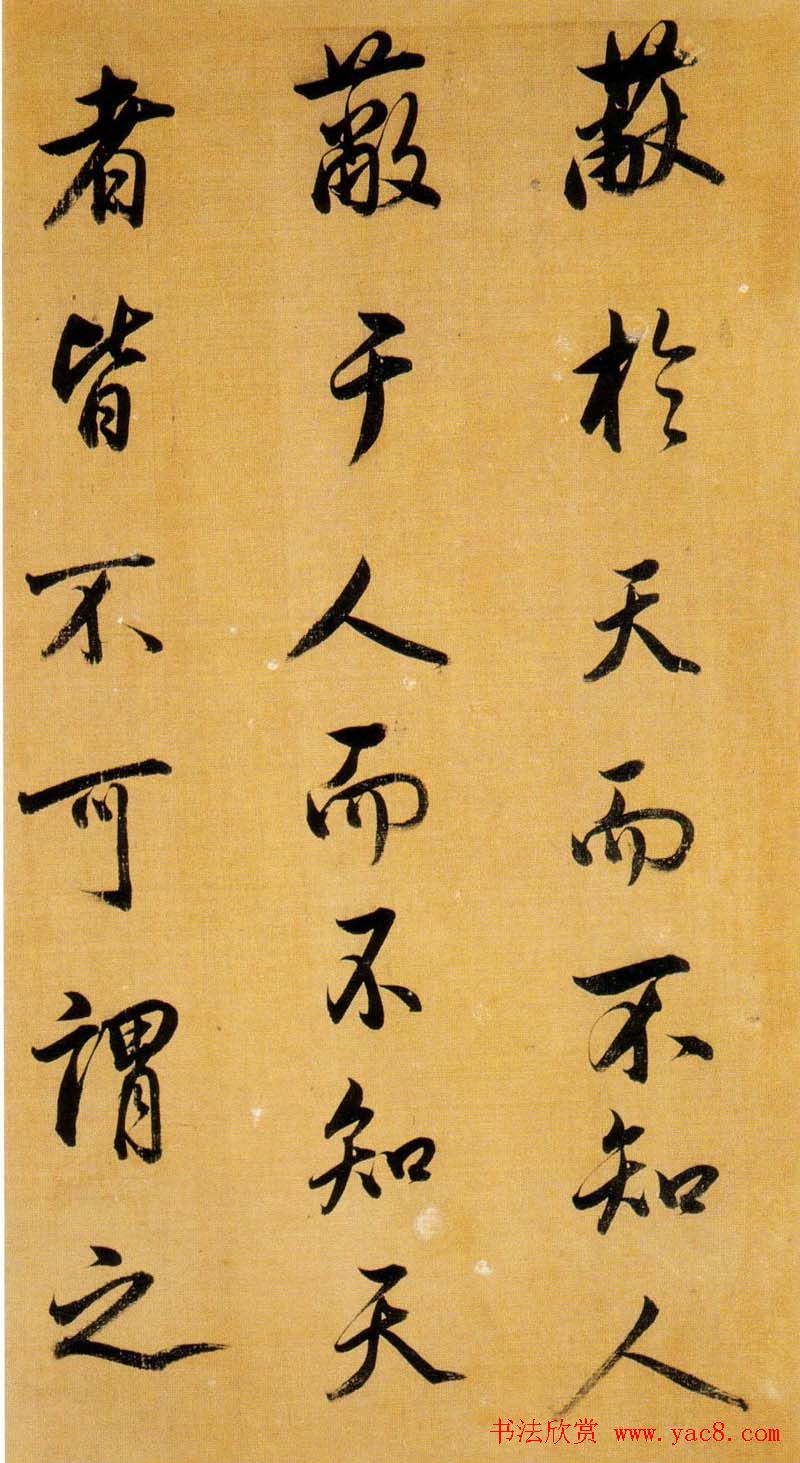 蔽於天而不知人
蔽于人而不知天
者皆不可謂之
书法欣赏 www.yac8.com